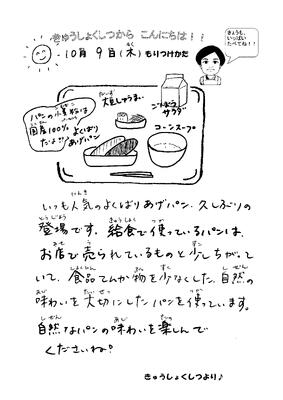 きゅうしょくしつから こんにちは!!
きょうも、
いっぱい
たべてね!!
10月 9日(木)もりつけかた
パンの小麦粉は
国産100%
だよ!!
よくばり
あげパン
大豆しゅうまい
ごぼう
サラダ
コーンスープ
いつも人気のよくばりあげパン。久しぶりの
登場です。給食で使っているパンは、
お店で売られているものと少しちがって
いて、食品てんか物を少なくした、自然の
味わいを大切にしたパンを使っています。
自然なパンの味わいを楽しんで
くださいね!
きゅうしょくしつより♪